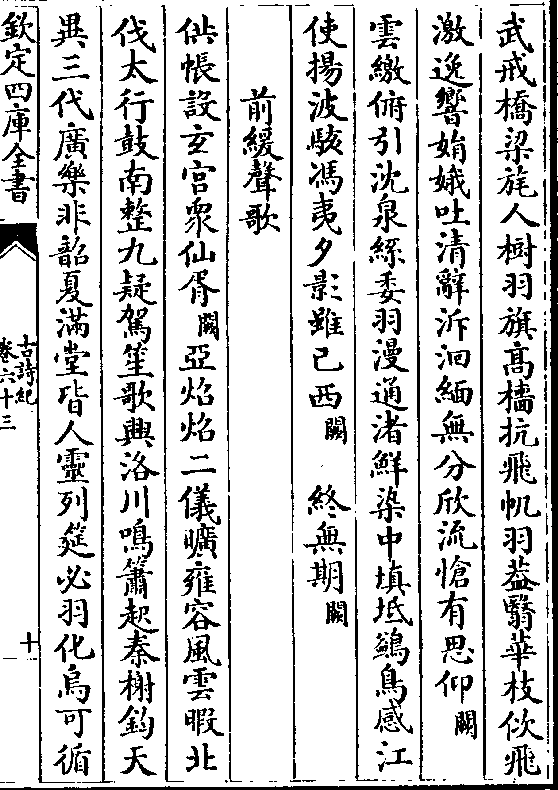 武戒橋梁旄人樹羽旗高檣抗飛帆羽葢翳華枝佽飛
激逸響娟娥吐清辭泝洄緬無分欣流愴有思仰闕
雲繳俯引沈泉絲委羽漫通渚鮮染中填坻鷁鳥感江
使揚波駭馮夷夕影雖已西闕 終無期闕
前緩聲歌
供帳設玄宮衆仙胥闕亞焰焰二儀曠雍容風雲暇北
伐太行鼓南整九疑駕笙歌興洛川鳴簫起秦榭鈞天
異三代廣樂非韶夏滿堂皆人靈列筵必羽化烏可循
欽定四庫全書
古詩紀
卷六十三
十